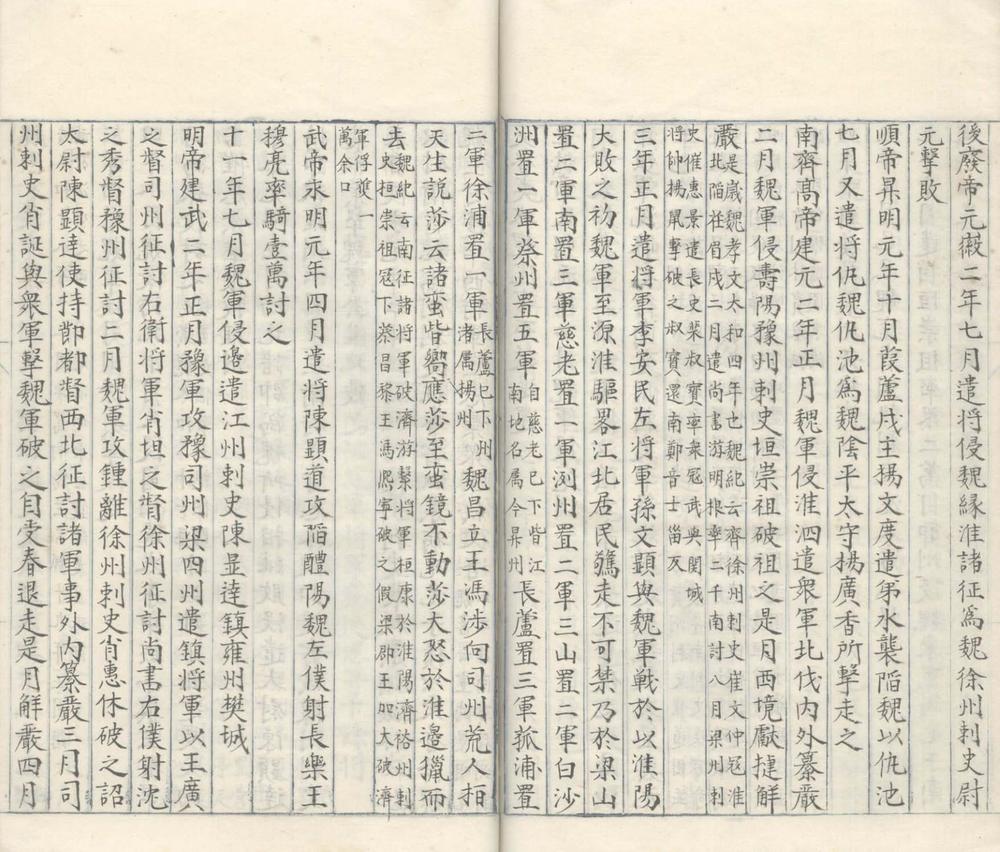 後廢帝元徽二年七月遣将侵魏緣淮諸征爲魏徐州剌史尉
元擊敗
順帝昇明元年十月葭蘆戍主揚文度遣弟水襲䧟魏以仇池
七月又遣将仇魏仇池爲魏陰平太守揚廣香所擊走之
南齊髙帝建元二年正月魏軍侵淮泗遣衆軍北伐内外纂嚴
二月魏軍侵壽陽豫州剌史垣崇祖破祖之是月西境獻捷解
嚴是歲魏孝文太和四年也魏紀云齊徐州刺史崔文仲冦淮
北䧟茌眉戍二月遣尚書游明根率二千南討八月梁州刺
史催惠景遣長史裴叔寳率衆冦武興関城
将帥揚鼠擊破之叔寳還南鄭音士甾反
三年正月遣将軍李安民左将軍孫文顕與魏軍戦於以淮陽
大敗之初魏軍至源淮驅畧江北居民驚走不可禁乃於梁山
置二軍南置三軍慈老置一軍洌州置二軍三山置二軍白沙
洲置一軍蔡州置五軍自慈老已下皆江
南地名属今昇州長蘆置三軍狐浦置
二軍徐浦置一軍長蘆已下州
渚属揚州魏昌立王馮渉向司州荒人栢
天生説莎云諸蛮皆嚮應莎至蛮鏡不動莎大怒於淮邉獵而
去魏紀云南征諸将軍破濟游繫将軍桓康於淮陽濟裕州剌
史桓崇祖冦下蔡昌黎王馮熈寧破之假梁郡王加大破濟
軍俘獲一
萬余口
武帝永明元年四月遣将陳顕道攻䧟醴陽魏左僕射長樂王
穆亮率騎壹萬討之
十一年七月魏軍侵邉遣江州剌史陳显逹鎮雍州樊城
明帝建武二年正月豫軍攻豫司州梁四州遣鎮将軍以王廣
之督司州征討右衛将軍肖坦之督徐州征討尚書右僕射沈
之秀督豫州征討二月魏軍攻鍾離徐州剌史肖惠休破之詔
太尉陳顕達使持節都督西北征討諸軍事外内纂嚴三月司
州剌史肖誕與衆軍擊魏軍破之自受春退走是月解嚴四月